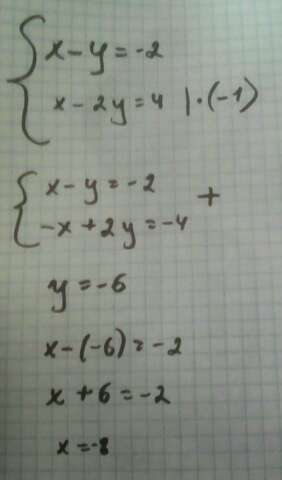 x - y = -2
x - 2y = 4 | · (-1)
x - y = -2 +
-x + 2y = -4
y = -6
x - (-6) = -2
x + 6 = -2
x = -8